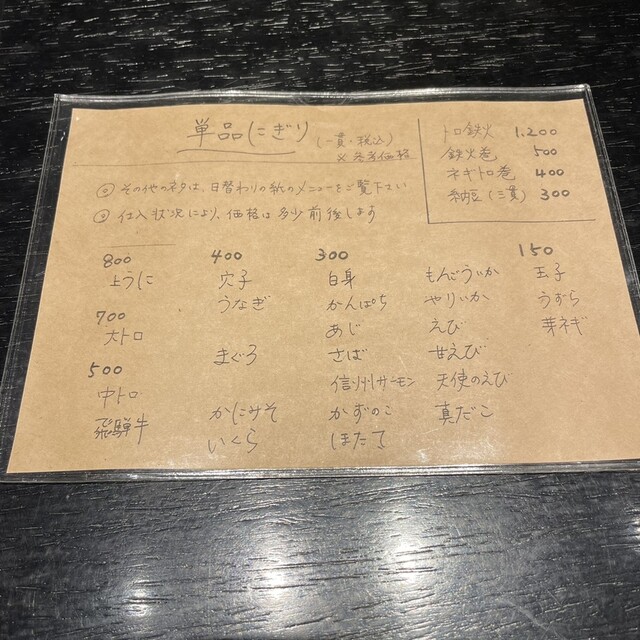 単品にぎり (一貫・税込)
※参考価格
◎ その他のネタは、日替わりの紙のメニューをご覧下さい
◎ 仕入状況により、価格は多少前後します
トロ鉄火 1.200
鉄火巻 500
ネギトロ巻 400
納豆(二貫) 300
800
上うに
700
大トロ
500
中トロ
飛騨牛
400
穴子
うなぎ
まぐろ
かにみそ
いくら
300
白身
かんぱち
あじ
さば
信州サーモン
かずのこ
ほたて
もんごういか
やりいか
えび
甘えび
天使のえび
真だこ
150
玉子
うずら
芽ネギ